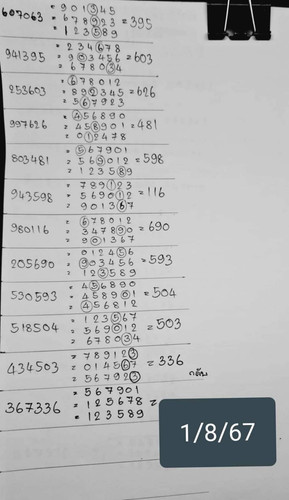 = 901345
607063 = 678923 = 395
= 123589
= 234678
941395 = 903456 = 603
= 678034
= 678012
253603 = 892345 = 626
= 567923
= 456890
997626 = 458901 = 481
= 012478
= 567901
803481 = 569012 = 598
= 123589
= 789123
943598 = 569012 = 116
= 901367
= 678012
980116 = 347890 = 690
= 901367
= 012456
205690 = 903456 = 593
= 123589
= 456890
530593 = 458901 = 504
= 456812
= 123567
518504 = 569012 = 503
= 678034
= 789123
434503 = 014567 = 336
= 567923 กลับ
= 567901
367336 = 125678 =
= 123589
1/8/67